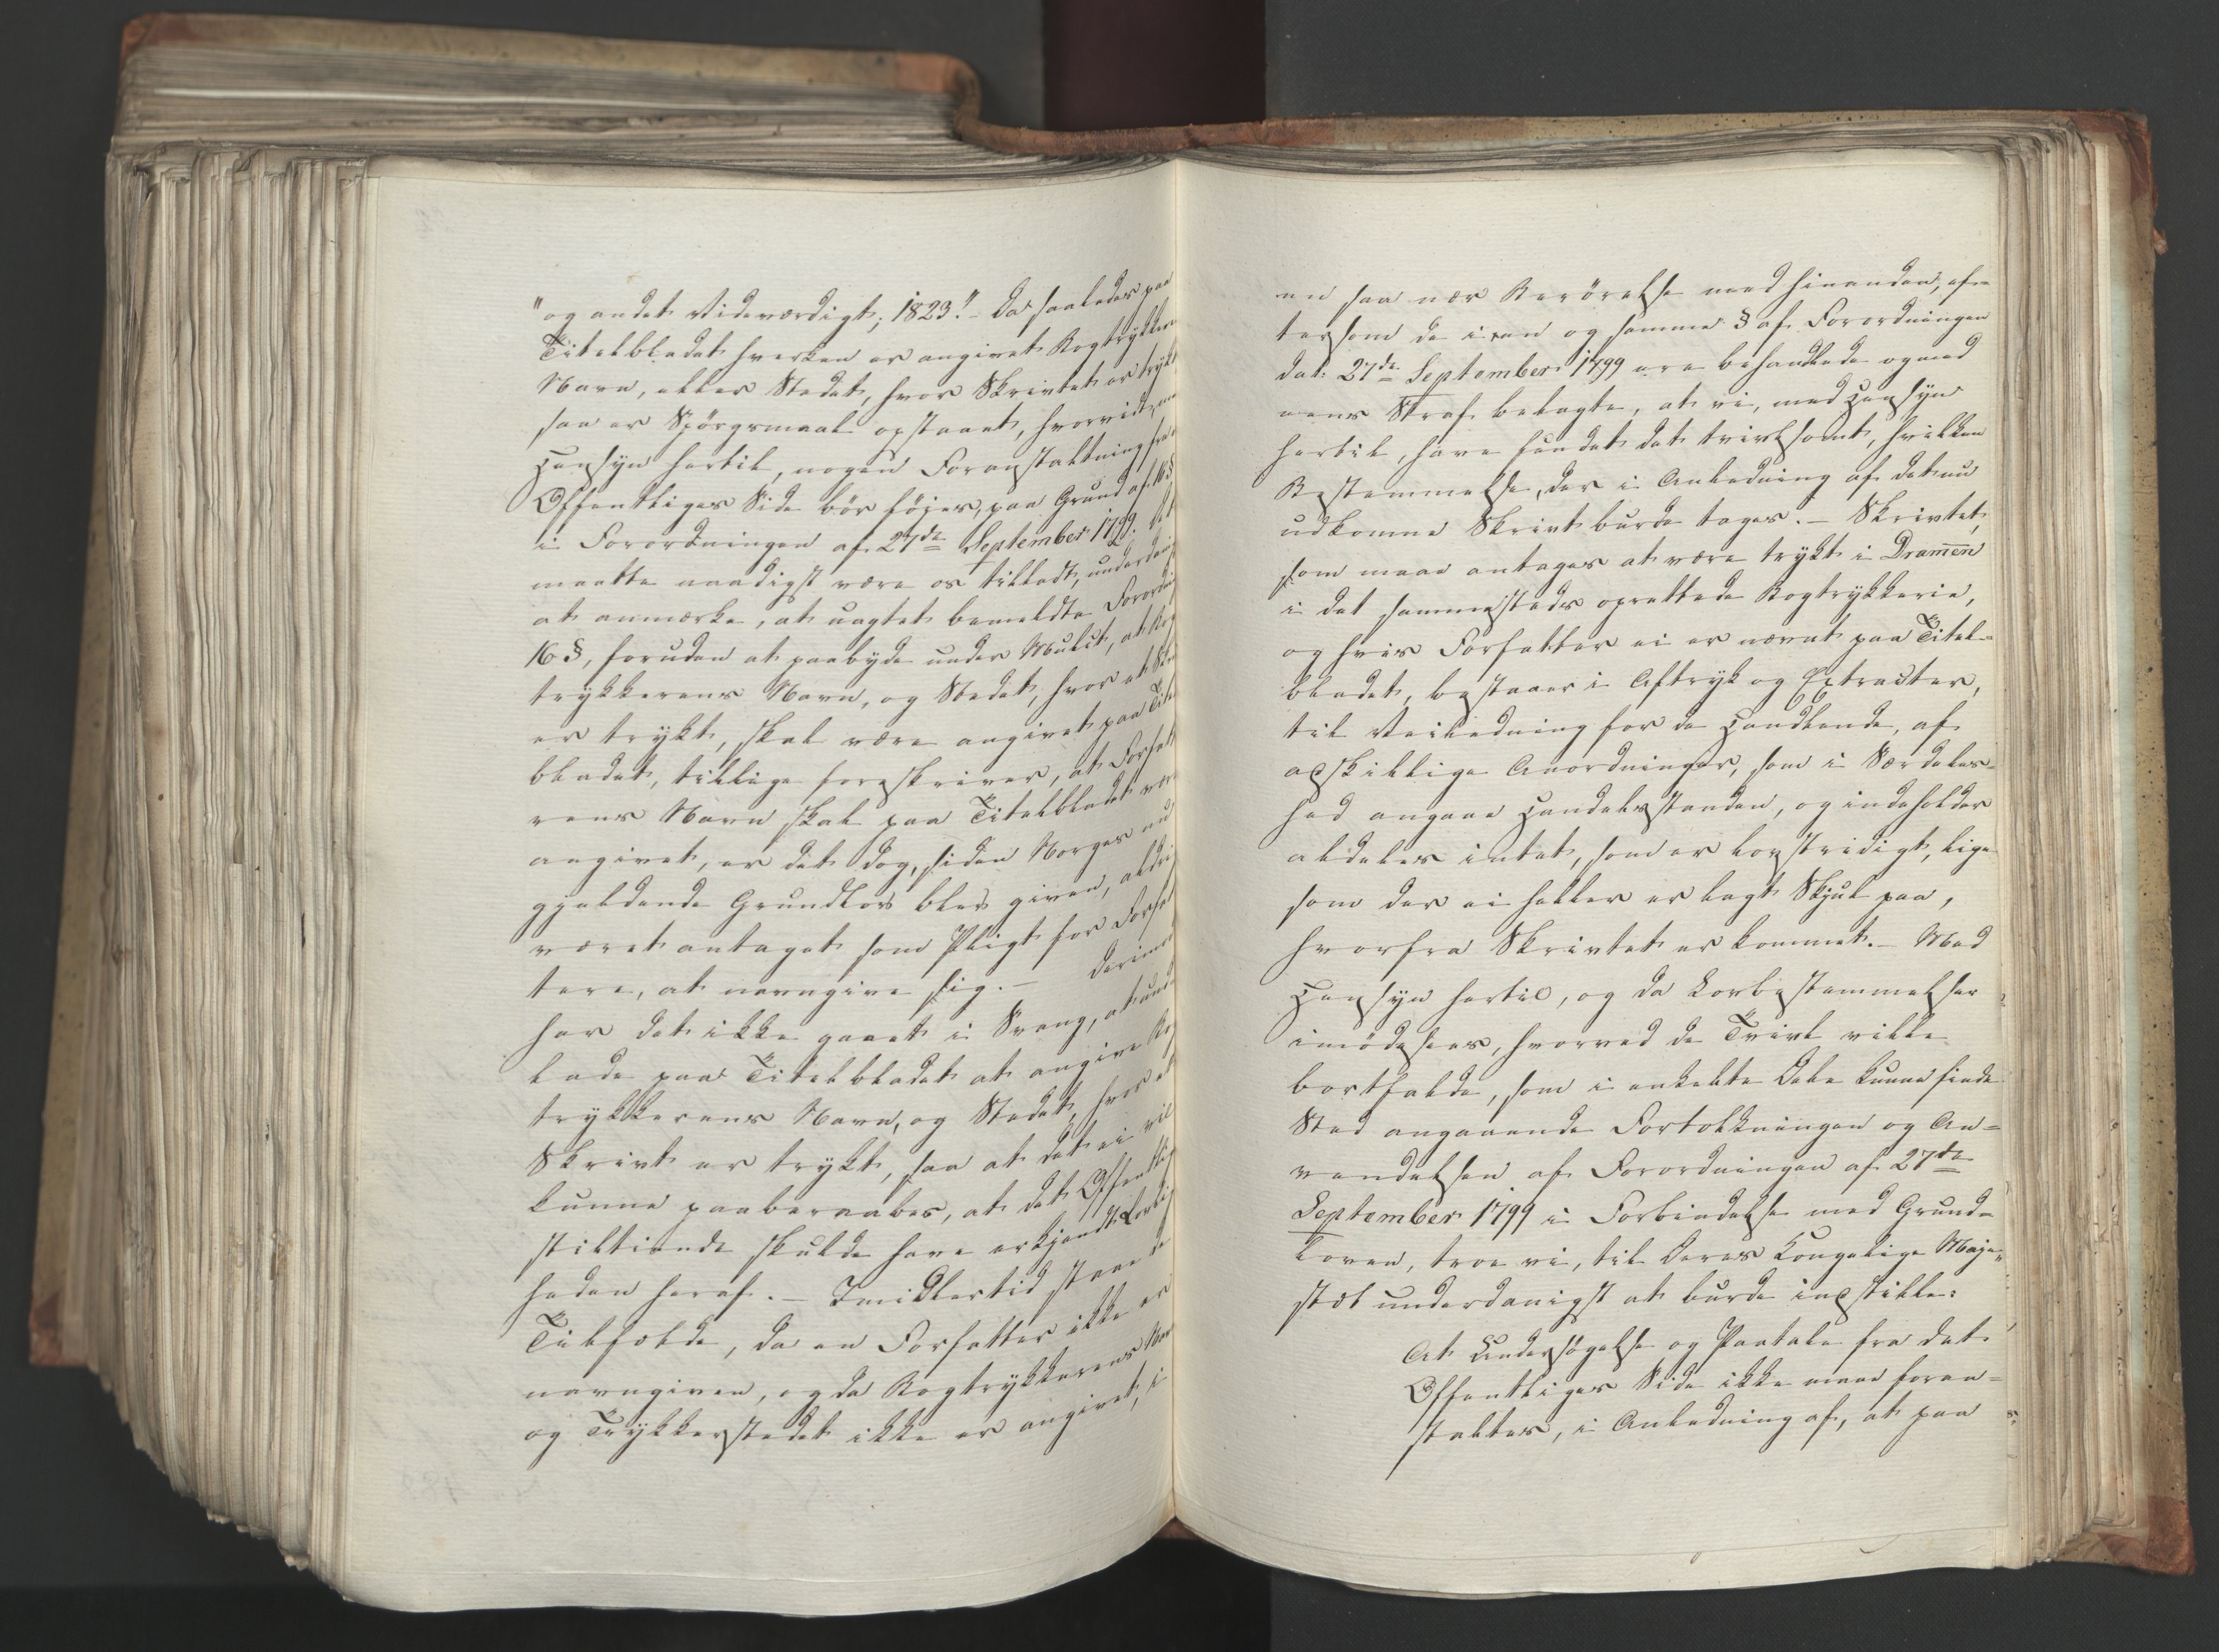 "og andet Videværdigt; 1823." – Da saaledes paa
Titelbladet hverken er angivet Bogtrykkerens
Navn, eller Stedet, hvor Skrivtet er trykt
saa er Spörgsmaal opstaaet, hvorvidt, med
Hensyn hertil, nogen Foranstaltning fra
Offentliges Side bör föjes, paa Grund af 16 §
i Forordningen af 27de September 1799. Det
maatte naadigst være os tilladt, underdanigst
at anmærke, at uagtet bemeldte Forordnings
16 §, foruden at paabyde under Mulct, at Bog
trykkerens Navn, og Stedet, hvor et Skrivt
er trykt, skal være angivet paa Titel
bladet, tillige foreskriver, at Forfatte
rens Navn skal paa Titelbladet være
angivet, er det dog, siden Norges nu
gjældende Grundlov blev given, aldrig
været antaget som Pligt for Forfat
tere, at navngive sig. – Derimod
har det ikke gaaet i Svang, at und
lade paa Titelbladet at angive Bog
trykkerens Navn, og Stedet, hvor et
Skrivt er trykt, saa at det ei vil
kunne paaberaabes, at det Offentlige
stiltiende skulde have erkjendt Lovlig
heden heraf. – Imidlertid staae de
Tilfælde, da en Forfatter ikke er
navngiven, og da Bogtrykkerens Navn
og Trykkerstedet ikke er angivet, i
en saa nær Berörelse med hinanden, ef=
tersom de i een og samme § af Forordningen
dat: 27de September 1799 ere behandlede og med
eens Straf belagte, at vi, med Hensyn
hertil, have fundet det tvivlsomt, hvilken
Bestemmelse, der i Anledning af det nu
udkomne Skrivt burde tages. – Skrivtet,
som maae antages at være trykt i Dramen
i det sammesteds oprettede Bogtrykkerie,
og hvis Forfatter ei er nævnt paa Titel=
bladet, bestaaer i Aftryk og Extracter,
til Veiledning for de Handlende, af
adskillige Anordninger, som i Særdeles=
hed angaae Handelsstanden, og indeholder
aldeles intet, som er lovstridigt, lige
som der ei heller er lagt Skjul paa,
hvorfra Skrivtet er kommet. – Med
Hensyn hertil, og da Lovbestemmelser
imödesees, hvorved de Tvivl ville
bortfalde, som i enkelte Dele kunne finde
Sted angaaende Fortolkningen og An=
vendelsen af Forordningen af 27de
September 1799 i Forbindelse med Grund=
loven, troe vi, til Deres Kongelige Maje=
stæt underdanigst at burde indstille:
At Undersögelse og Paatale fra det
Offentliges Side ikke maae foran=
staltes, i Anledning af, at paa